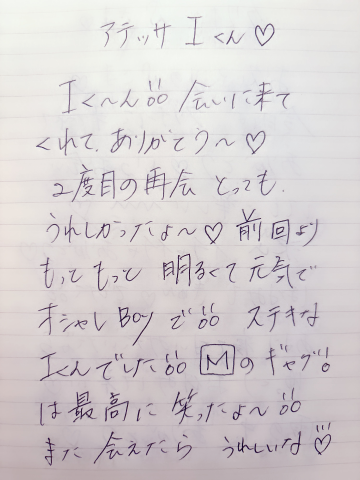 アテッサ Iくん♡
Iく〜ん!! 会いに来て
くれて、ありがとう〜♡
2度目の再会 とっても、
うれしかったよ〜♡ 前回より
もっともっと 明るくて元気で
オシャレBoyで!! ステキな
Iくんでした!! Mのギャグ!
は最高に 笑ったよ〜!!
また 会えたら うれしいな♡